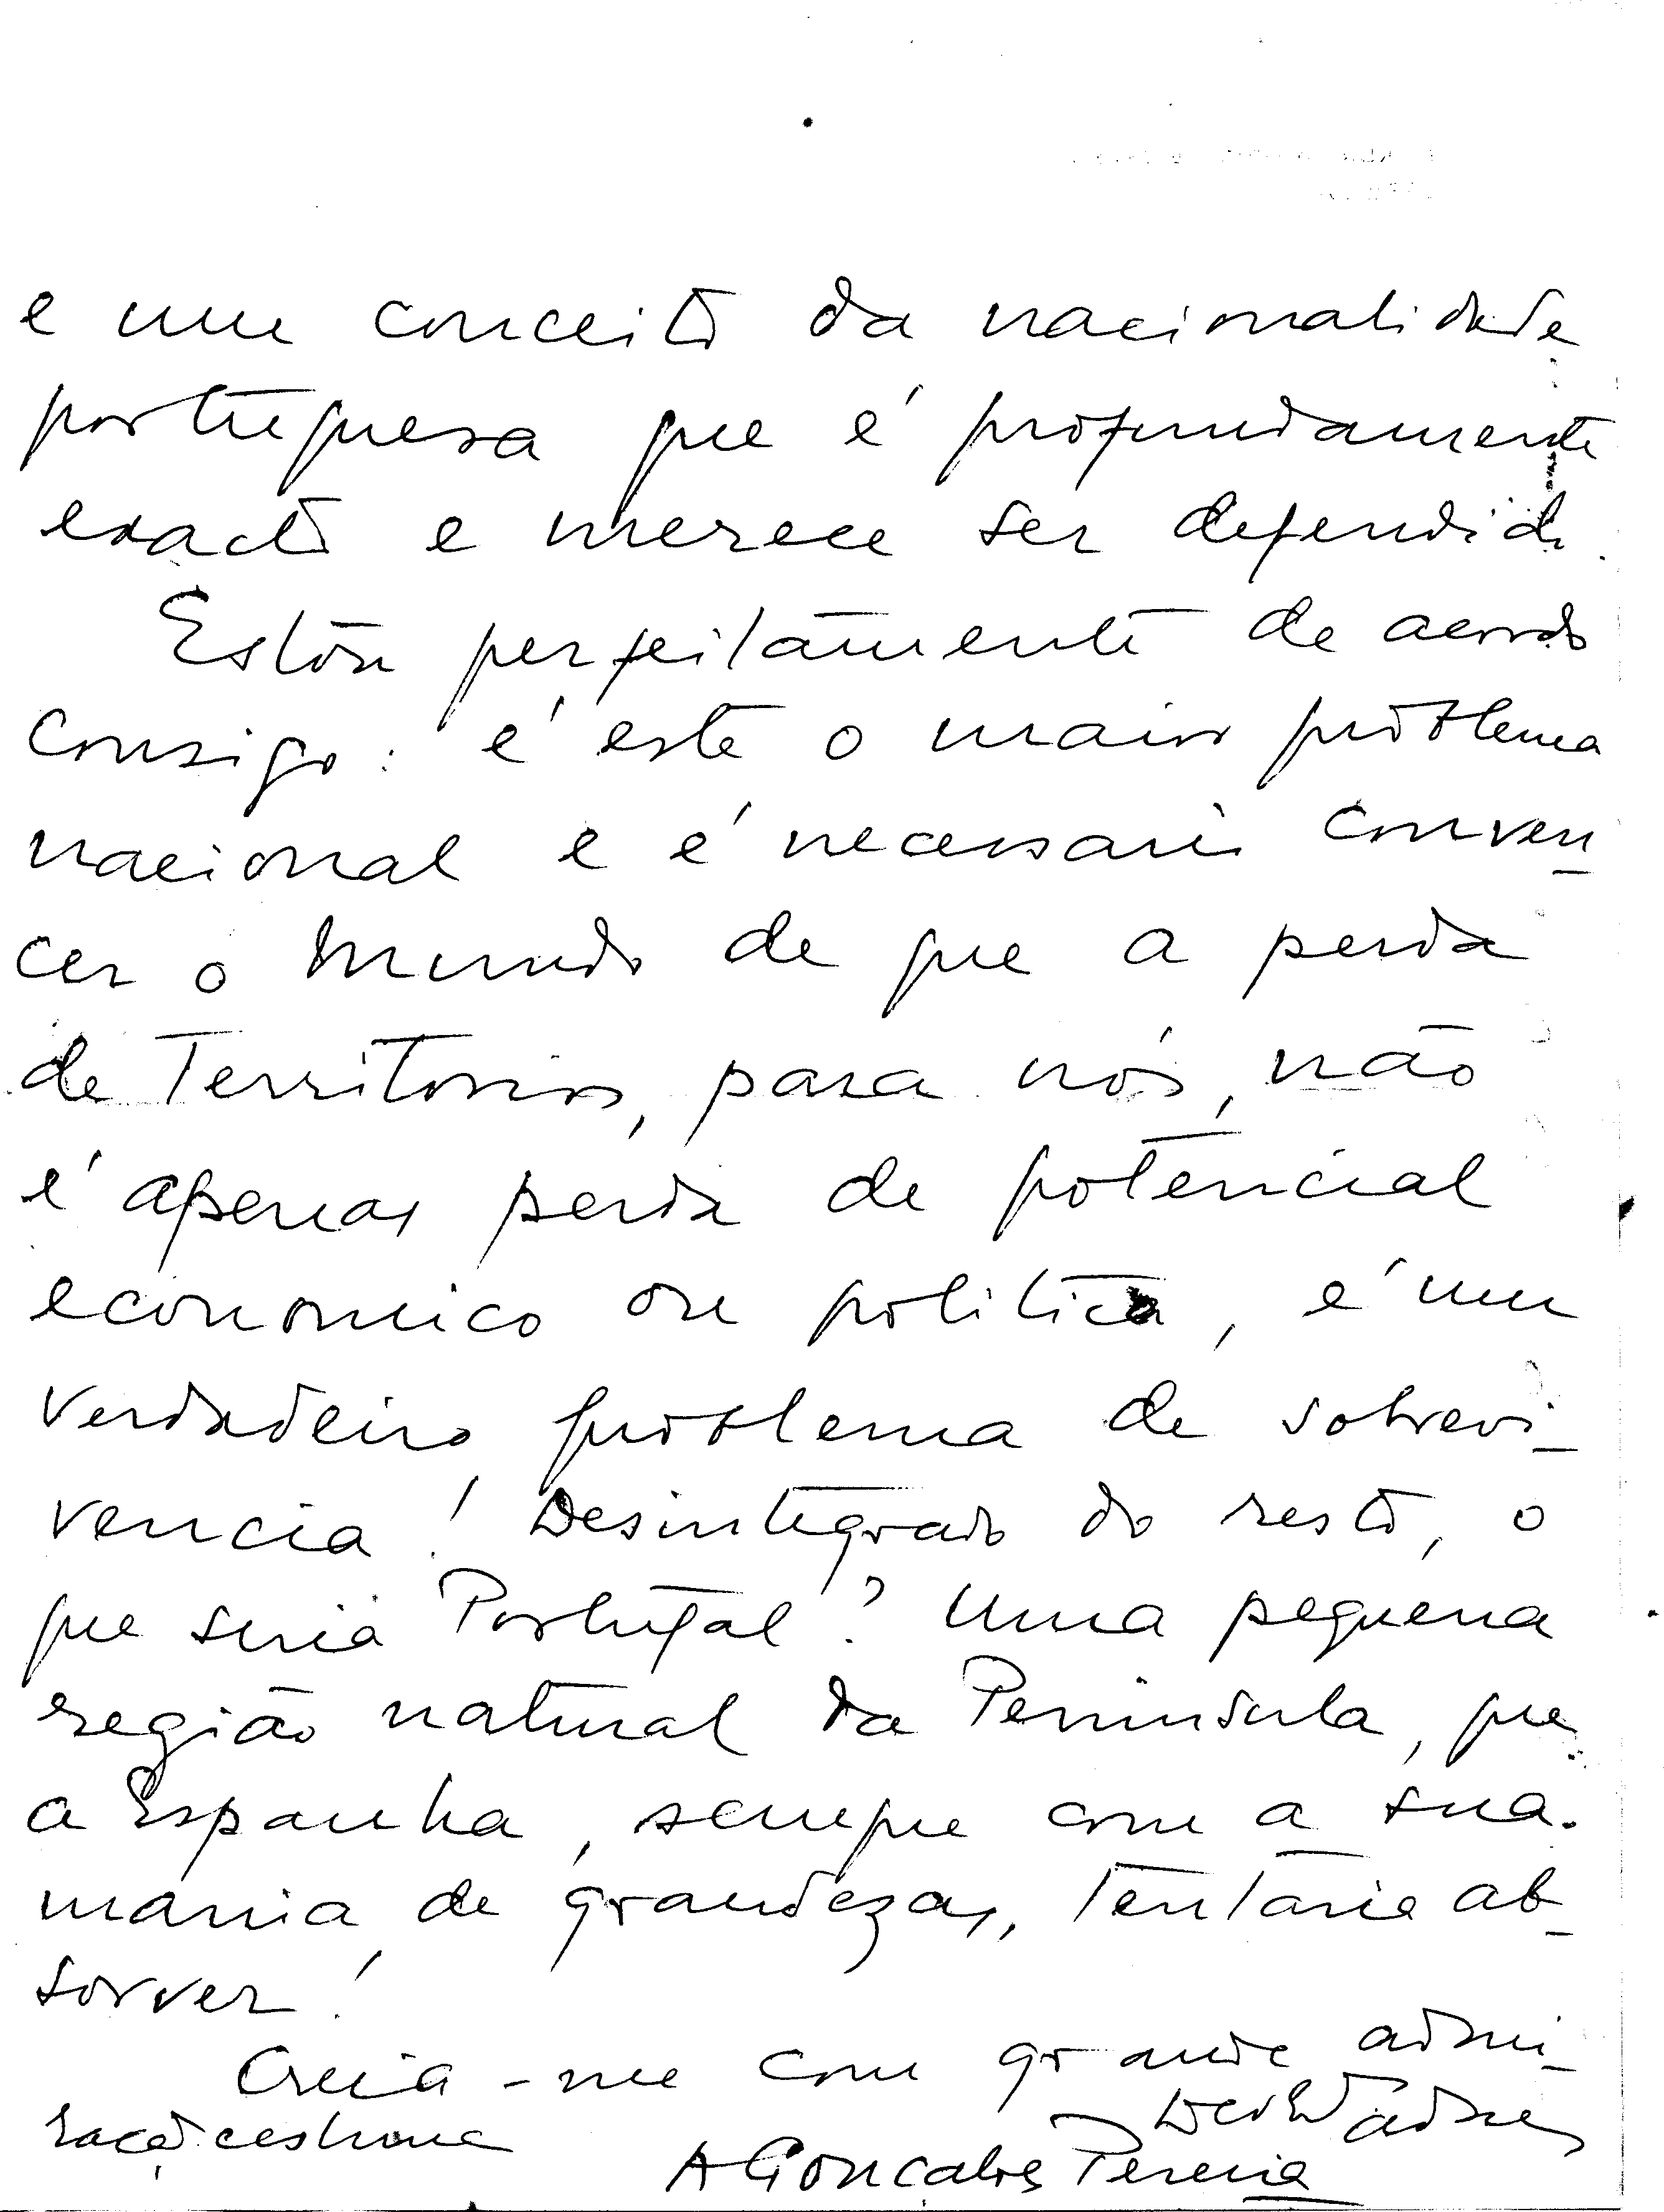 e um conceito da nacionalidade
portuguesa que é profundamente
exacto e merece ser defendido.
Estou perfeitamente de acordo
consigo: é este o maior problema
nacional e é necessario conven-
cer o Mundo de que a perda
de Territorios, para nós, não
é apenas perda de potencial
economico ou politico, é um
verdadeiro problema de sobrevi-
vencia! Desintegrado do resto, o
que seria Portugal? Uma pequena
região natural da Peninsula, que
a Espanha, sempre com a sua
mania de grandezas, tentaria ab-
sorver!
Creia-me com grande admi-
ração e estima
A Gonçalves Pereira